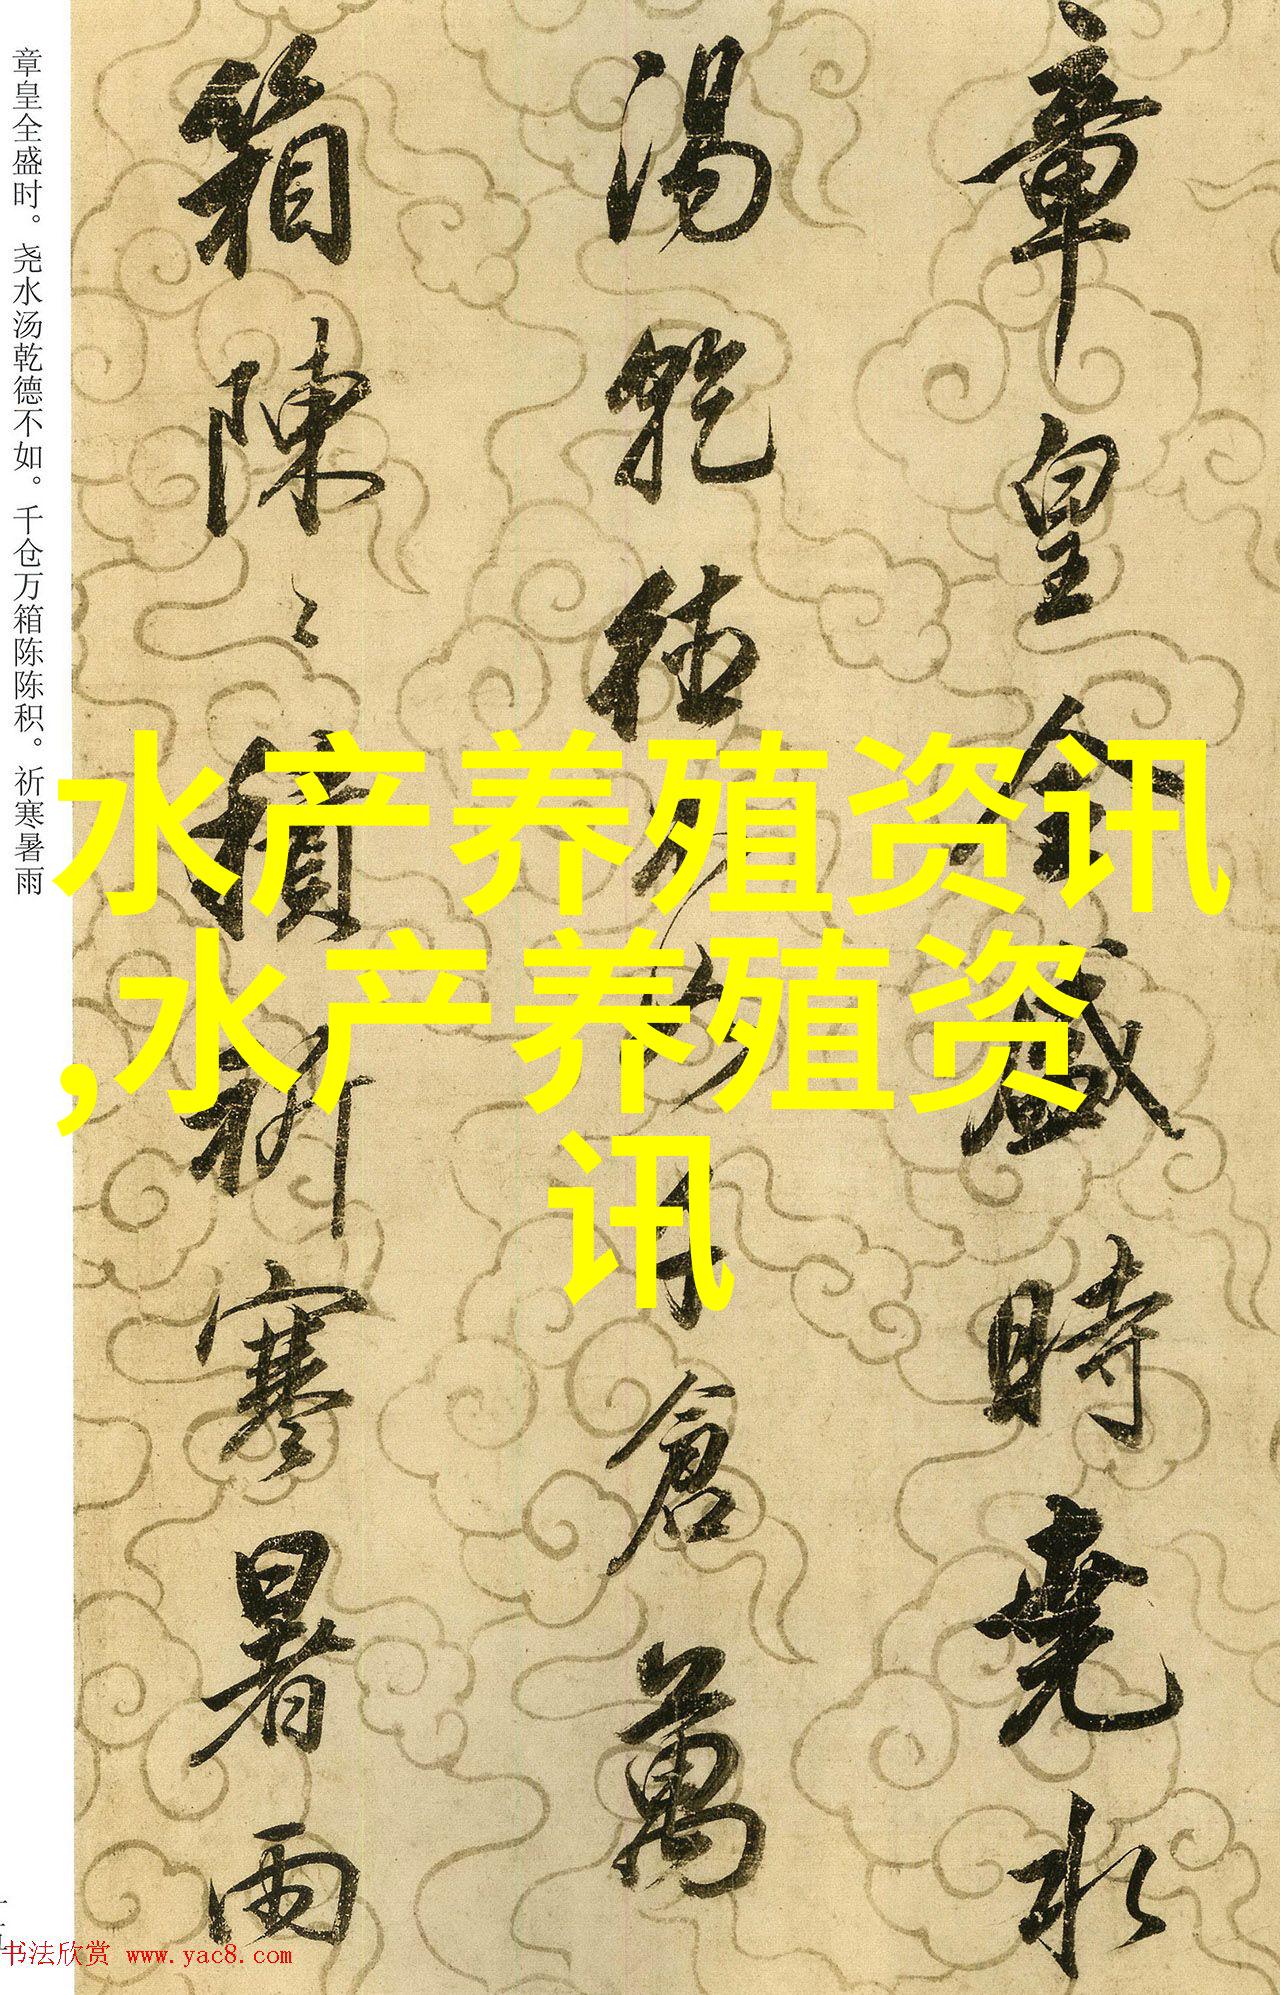 章皇全盛時堯水
湯乾德不如千倉萬
箱陳〻積祈寒暑雨
章皇全盛时。尧水汤乾德不如。千仓万箱陈陈积。祈寒暑雨
水产养殖资讯
,水产养殖资
讯
书法欣赏 www.yac8.com